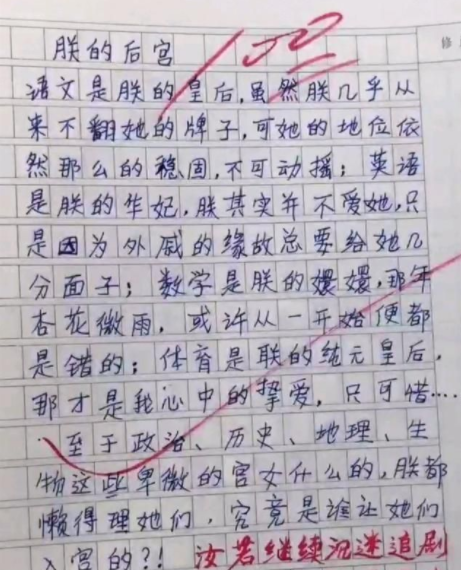 朕的后宫
100
语文是朕的皇后,虽然朕几乎从
来不翻她的牌子,可她的地位依
然那么的稳固,不可动摇;英语
是朕的华妃,朕其实并不爱她,只
是因为外戚的缘故总要给她几
分面子;数学是朕的嬛嬛,那年
杏花微雨,或许从一开始便都
是错的;体育是联的纯元皇后,
那才是我心中的挚爱,只可惜……
至于政治、历史、地理、生
物这些卑微的宫女什么的,朕都
懒得理她们,究竟是谁让她们
入宫的?!
汝若继续沉迷追剧